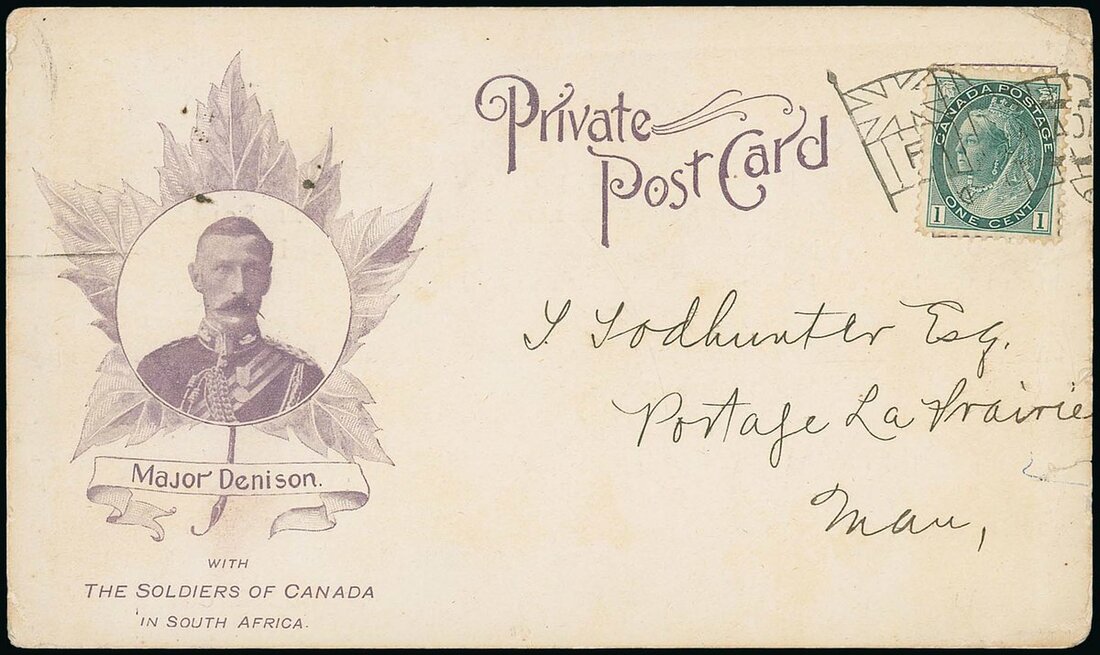 Private
Post Card
CANADA POSTAGE
1 ONE CENT 1
T Todhunter Esq.
Portage La Prairie
Man,
Major Denison.
WITH
THE SOLDIERS OF CANADA
IN SOUTH AFRICA.